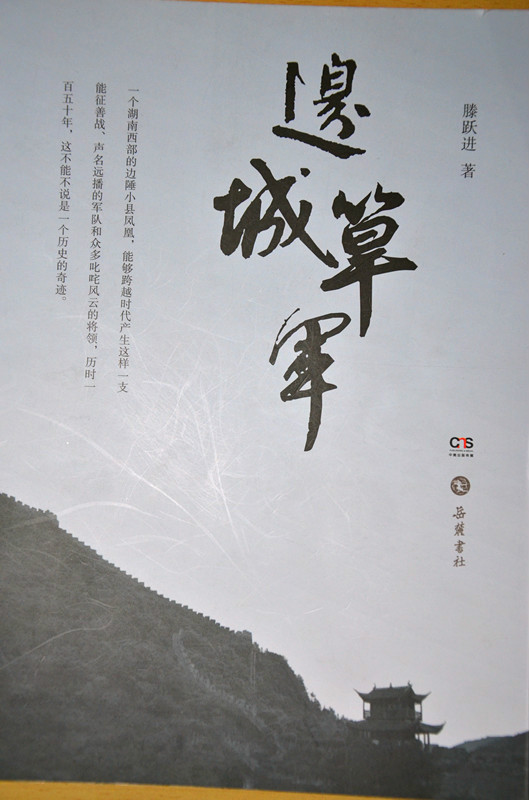 滕跃进 著
邊
城
筸
軍
一个湖南西部的边陲小县凤凰，能够跨越时代产生这样一支
能征善战、声名远播的军队和众多叱咤风云的将领，历时一
百五十年，这不能不说是一个历史的奇迹。
岳麓书社